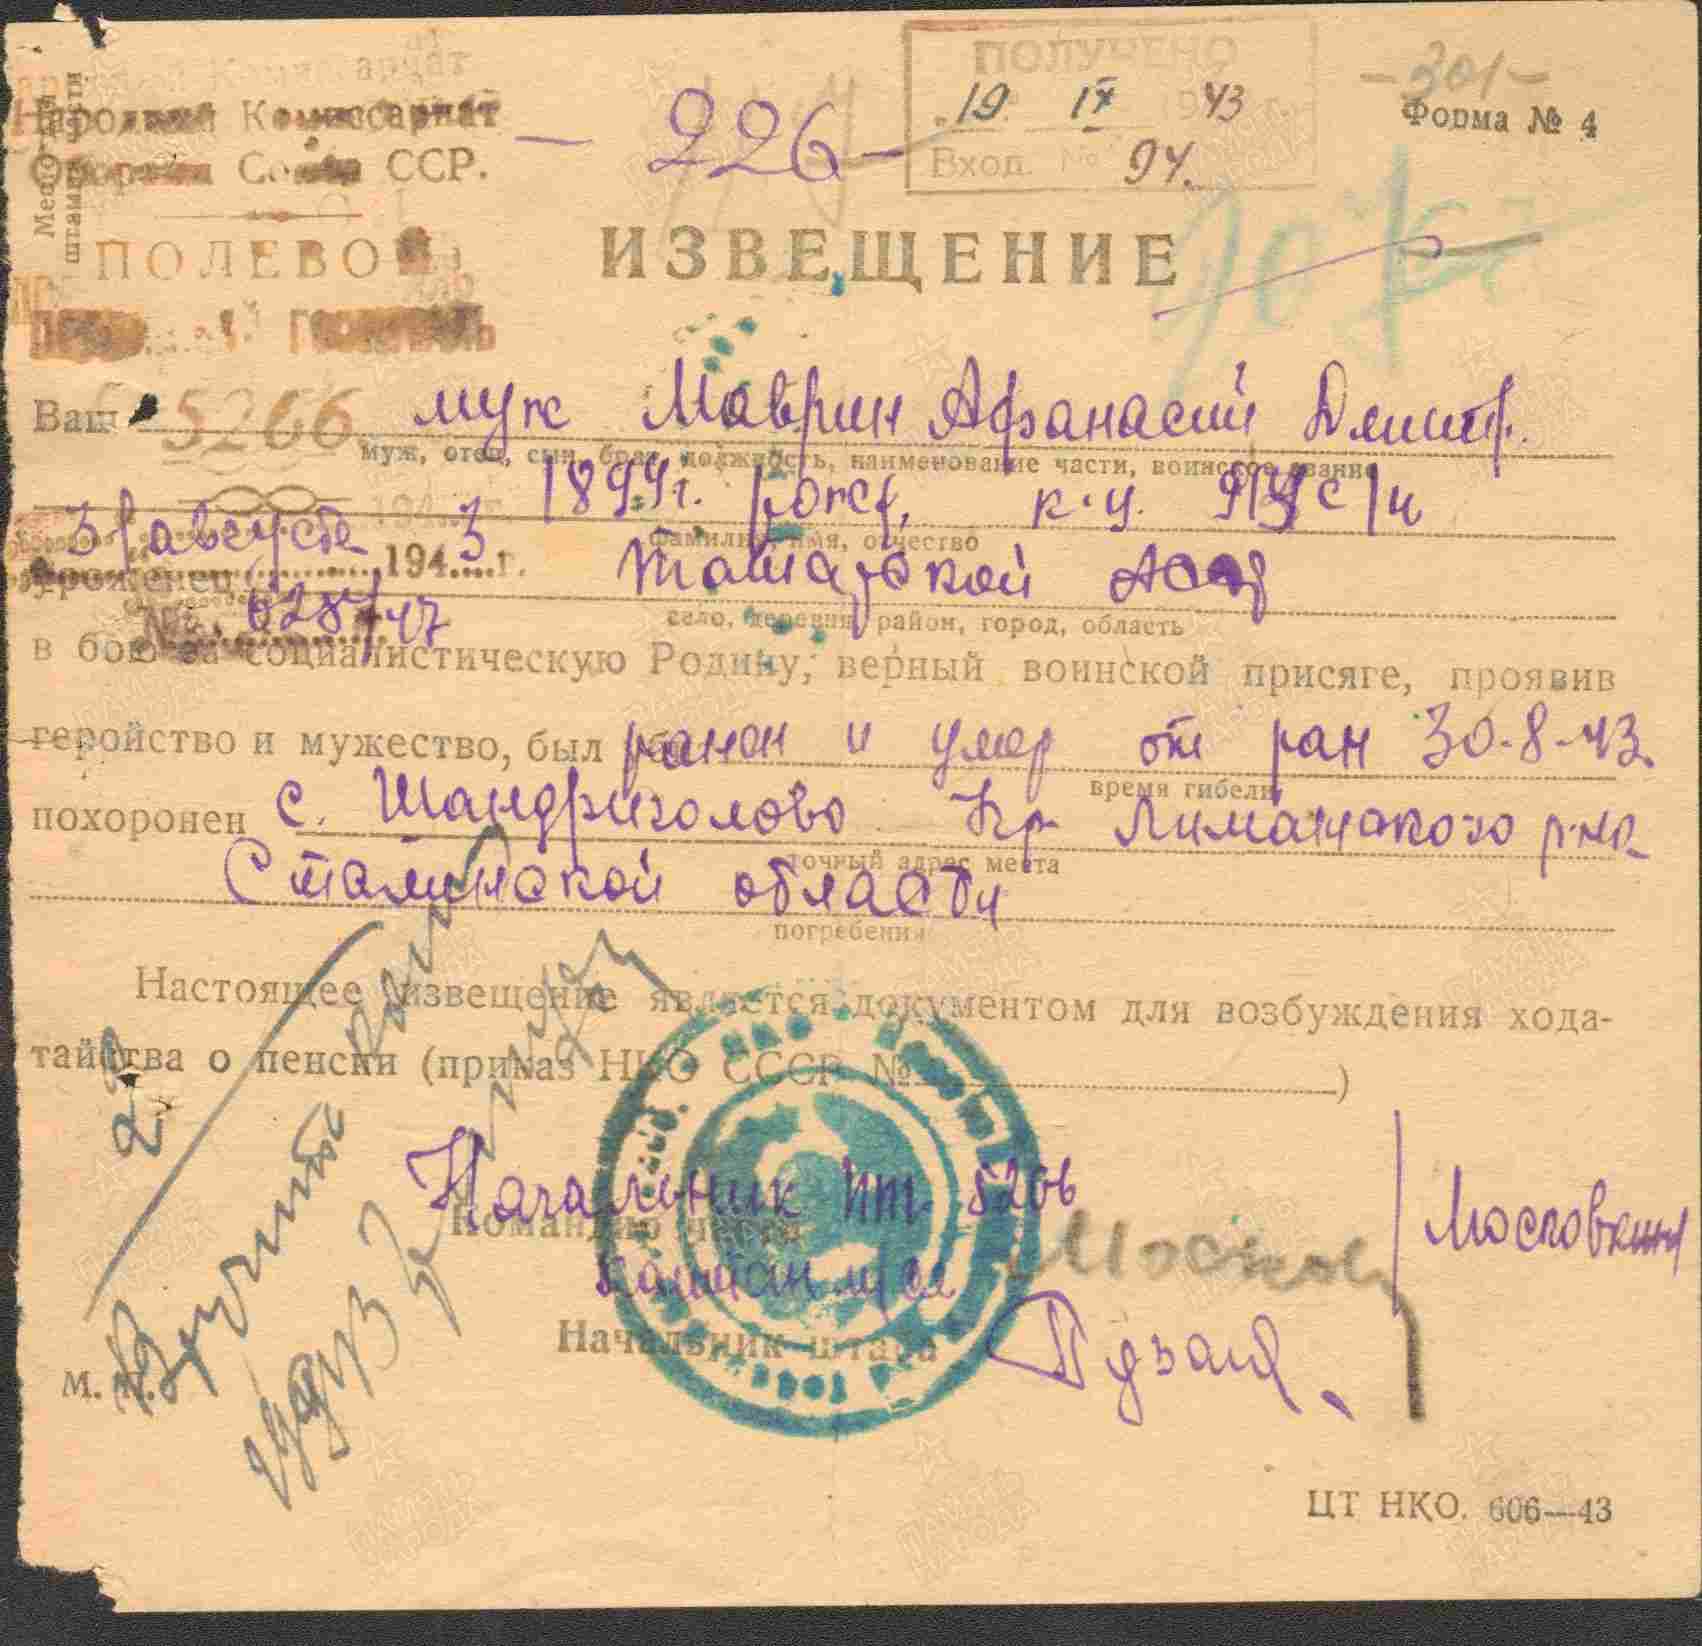 - 301 -
Форма № 4
Место для штампа части
Народный Комиссариат
Обороны Союза ССР.
ПОЛЕВОЙ
Госпиталь
5266
- 226 -
ПОЛУЧЕНО
"19" IX 1943
Вход. № 94.
ИЗВЕЩЕНИЕ
Ваш муж Маврин Афанасий Дмитр.
муж, отец, сын, брат, должность, наименование части, воинское звание
1899 г. рожд.
фамилия, имя, отчество
31 августа 1943 г.
Уроженец Татарской АССР
№ 628/47
село, деревня, район, город, область
в бою за социалистическую Родину, верный воинской присяге, проявив
геройство и мужество, был ранен и умер от ран 30-8-43.
время гибели
похоронен с. Шандриголово Кр Лиманского р-на
точный адрес места
Сталинской области
погребения
Настоящее извещение является документом для возбуждения хода-
тайства о пенсии (приказ НКО СССР № )
Начальник 5266
Командир части
Капитан м/сл
Московкин
Начальник штаба
М. П.
Вручить
ЦТ НКО. 606—43